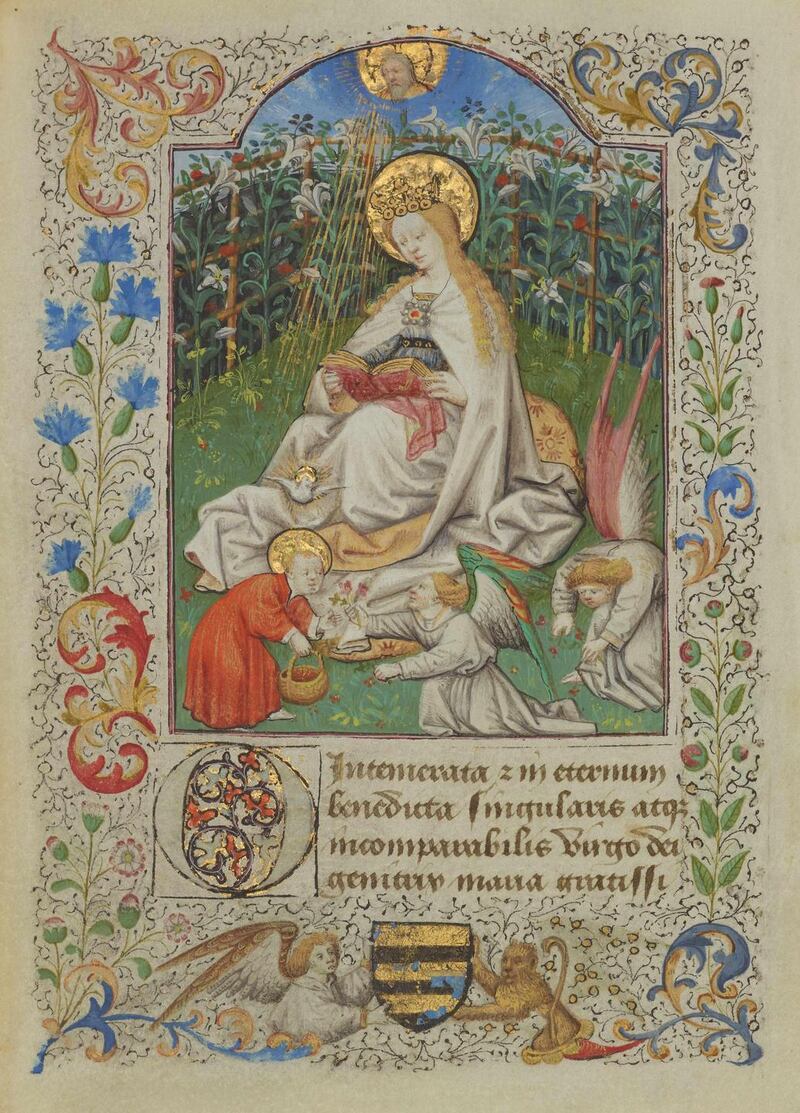 O Intemerata ⁊ in eternum
benedicta singularis atqꝫ
incomparabilis Virgo dei
genitrix maria gratissi